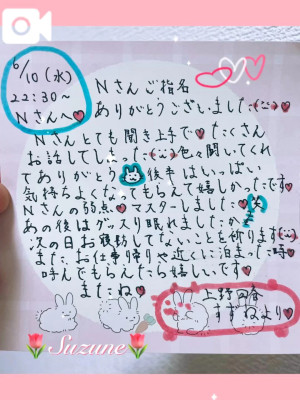 6/10(水)
22:30~
Nさんへ
Nさんご指名
ありがとうございました
Nさんとても聞き上手で たくさん
お話してしまった 色々聞いてくれ
てありがとう 後半はいっぱい
気持ちよくなってもらえて嬉しかったです
Nさんの弱点 マスターしました
あの後はグッスリ眠れましたか
次の日お腹防してないことを祈ります
また、お仕事帰りや近くに泊まった時
呼んでもらえたら嬉しいです
またね
上野回春
すずねより
Suzune